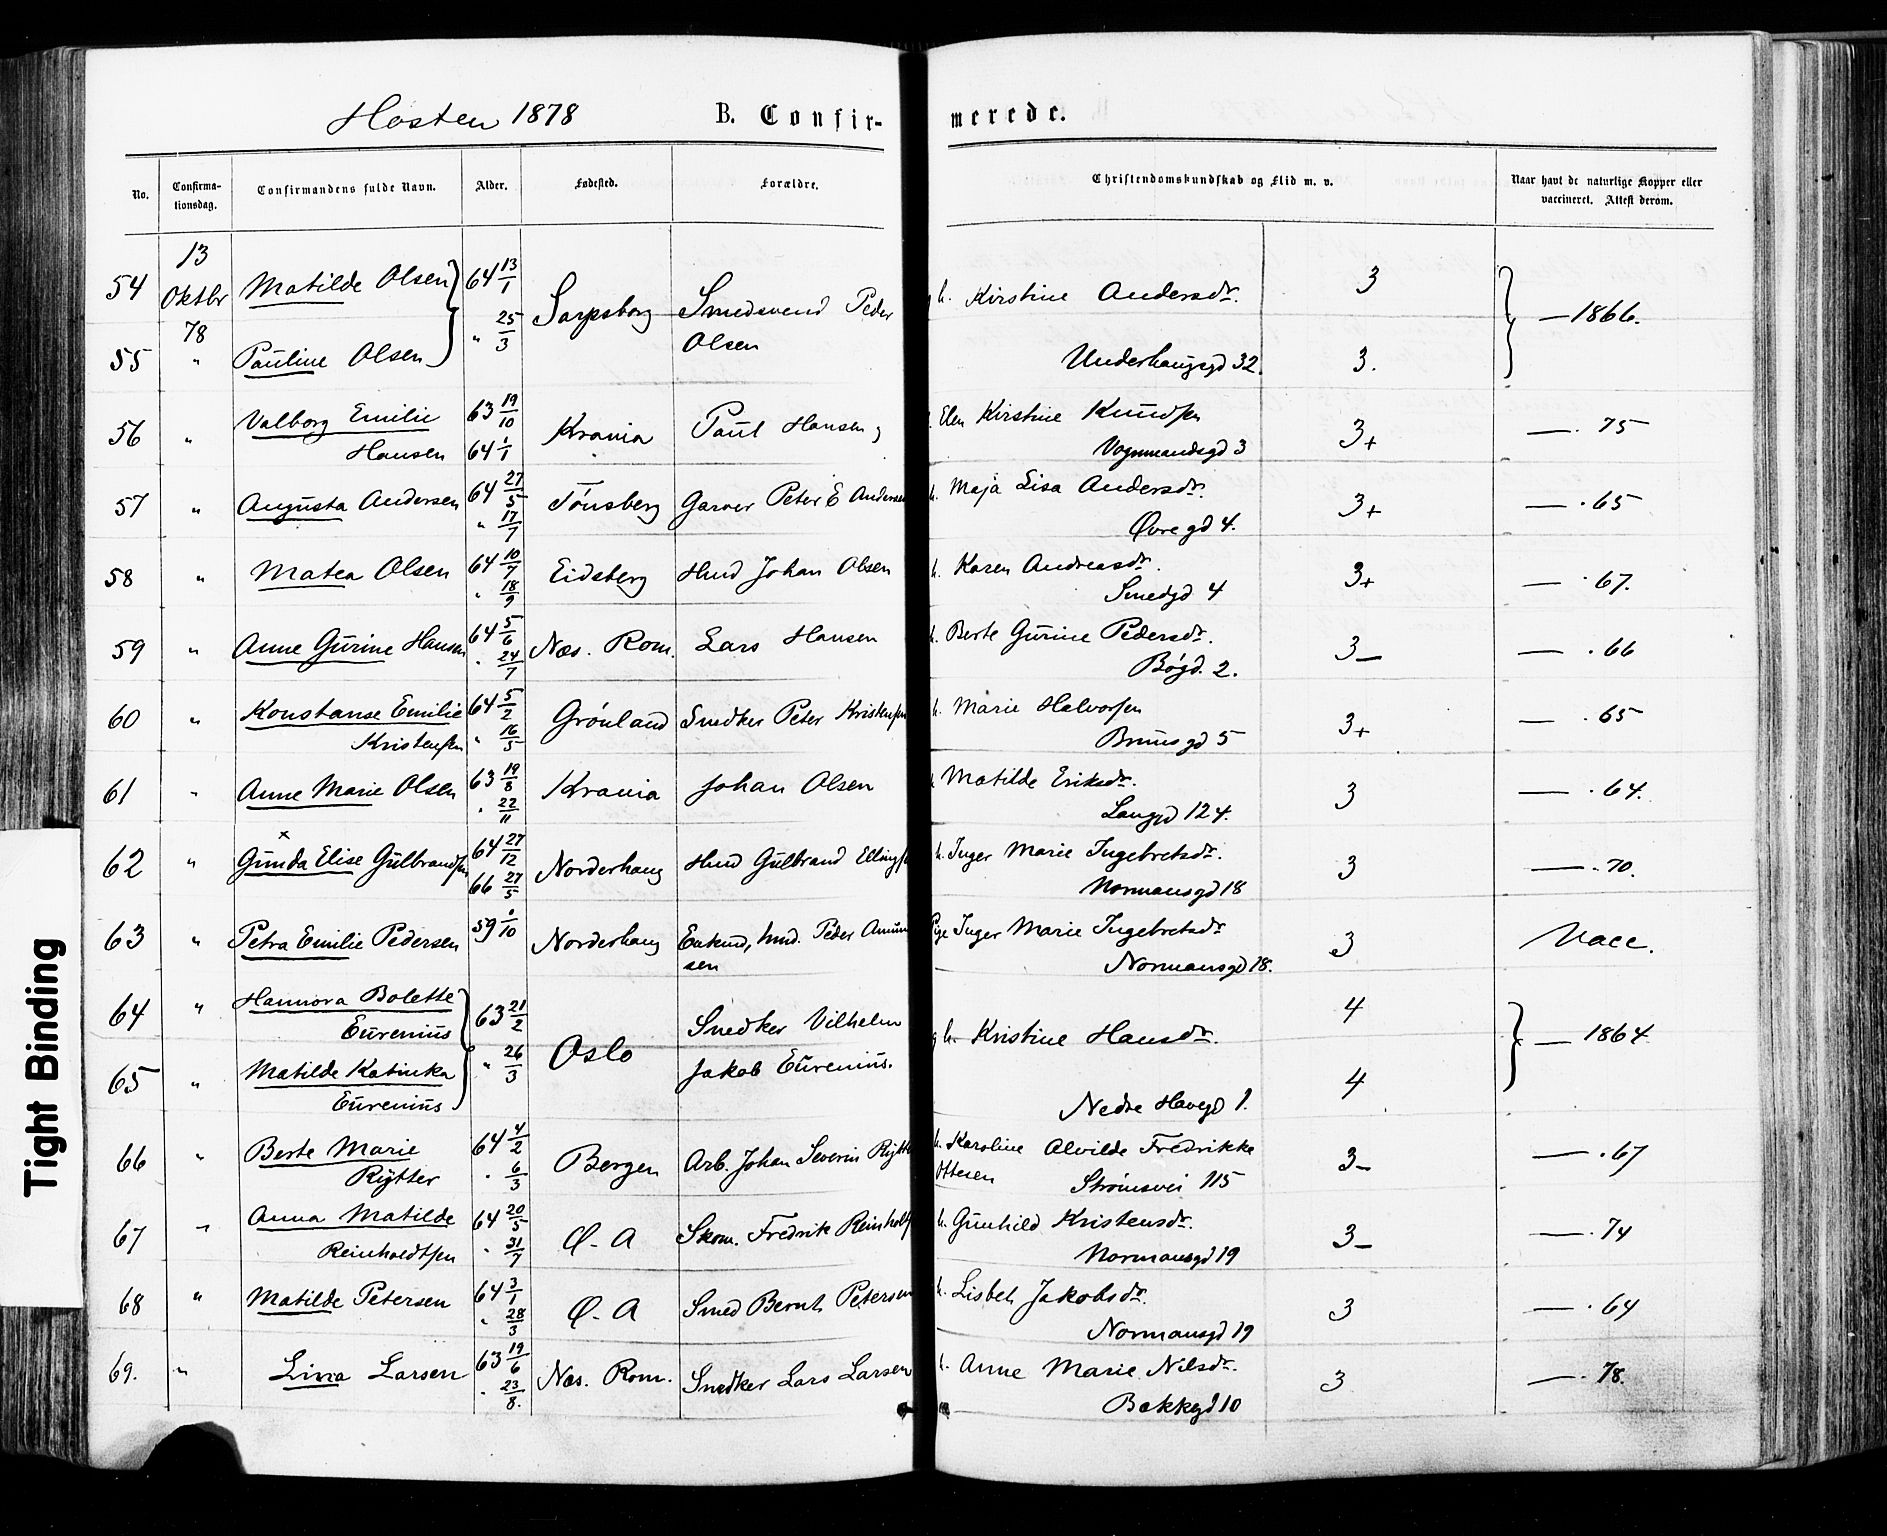 Høsten 1878 B. Confir- merede.
No. Confirma-tionsdag. Confirmandens fulde Navn. Alder. Fødested. Forældre. Christendomskundskab og Flid m. v. Naar havt de naturlige Kopper eller vaccineret. Attest derom.
54 13 Oktbr 78 Matilde Olsen 64 13/1 Sarpsborg Smedsvend Peder Olsen g h. Kirstine Andersdr. 3 — 1866.
55 " Pauline Olsen " 25/3 Underhaugsgd 32. 3.
56 " Valborg Emilie Hansen 63 19/10 64 1/1 Krania Paul Hansen g. Elen Kirstine Knudsen Vognmandsgd 3 3+ — . 75
57 " Augusta Andersen 64 27/5 " 17/7 Tönsberg Garver Peter E Andersen h. Maja Lisa Andersdr. Øvregd 4. 3+ — . 65
58 " Matea Olsen 64 10/7 " 18/9 Eidsberg Hmd Johan Olsen h. Karen Andreasdr. Smedgd 4 3+ — . 67.
59 " Anne Gurine Hansen 64 5/6 " 24/7 Næs. Rom. Lars Hansen h. Berte Gurine Pedersdr. Bøgd. 2. 3— — . 66
60 " Konstanse Emilie Kristensen 64 5/2 " 16/5 Grönland Snedker Peter Kristensen h. Marie Halvorsen Brunsgd 5 3+ — . 65
61 " Anne Marie Olsen 63 19/8 " 22/11 Krania Johan Olsen Matilde Eriksdr. Langgd 124. 3 — . 64.
62 " x Gunda Elise Gulbrandsen 64 27/12 66 27/5 Norderhaug Hmd Gulbrand Ellingsen h. Inger Marie Ingebretsdr. Normansgd 18 3 — . 70.
63 " Petra Emilie Pedersen 59 1/10 Norderhaug Enkmd, hmd. Peder Amundsen Pige Inger Marie Ingebretsdr Normansgd 18. 3 Vacc.
64 " Hannora Bolette Eurenius 63 21/2 Oslo Snedker Vilhelm Jakob Eurenius. g h. Kristine Hansdr. 4 — 1864.
65 " Matilde Katinka Eurenius " 26/3 Nedre Havegd 1. 4
66 " Berte Marie Rytter 64 4/2 " 6/3 Bergen Arb. Johan Severin Rytter h. Karoline Alvilde Fredrikke Ottesen Strömsvei 115 3— — . 67
67 " Anna Matilde Reinholdtsen 64 20/5 " 31/7 Ø. A Skom. Fredrik Reinholdts h. Gunhild Kristensdr. Normansgd 19 3— — . 74
68 " Matilde Petersen 64 3/1 " 28/3 Ø. A Smed Bernh Petersen h. Lisbeth Jakobsdr. Normansgd 19 3 — . 64
69. " Lina Larsen 63 19/6 " 23/8. Næs. Rom. Snedker Lars Larsen h. Anne Marie Nilsdr. Bakkegd 10 3 — . 78.
Tight Binding